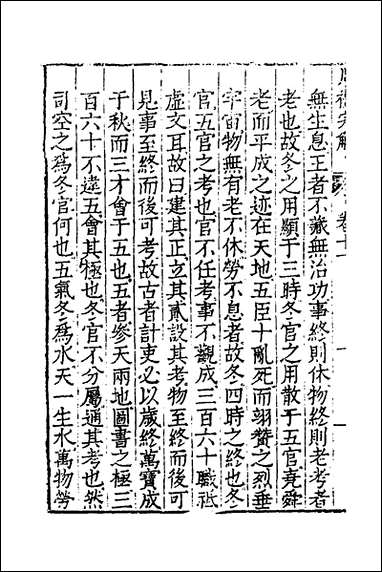 禮完解 卷十
無生息王者不藏無治功事終則休物終則老考者
老也故冬之用顯于三時冬官之用散于五官堯舜
老而平成之迹在天地五臣十亂死而翊贊之烈垂
宇宙物無有老不休勞不息者故冬四時之終也冬
官五官之考也官不任考事不觀成三百六十職祗
虛文耳故曰建其正立其貳設其考物至終而後可
見事至終而後可考故古者計吏必以歲終萬寶成
于秋而三才會于五也五者參天兩地圖書之極三
百六十不違五會其極也冬官不分屬通其考也然
司空之爲冬官何也五氣冬爲水天一生水萬物勞